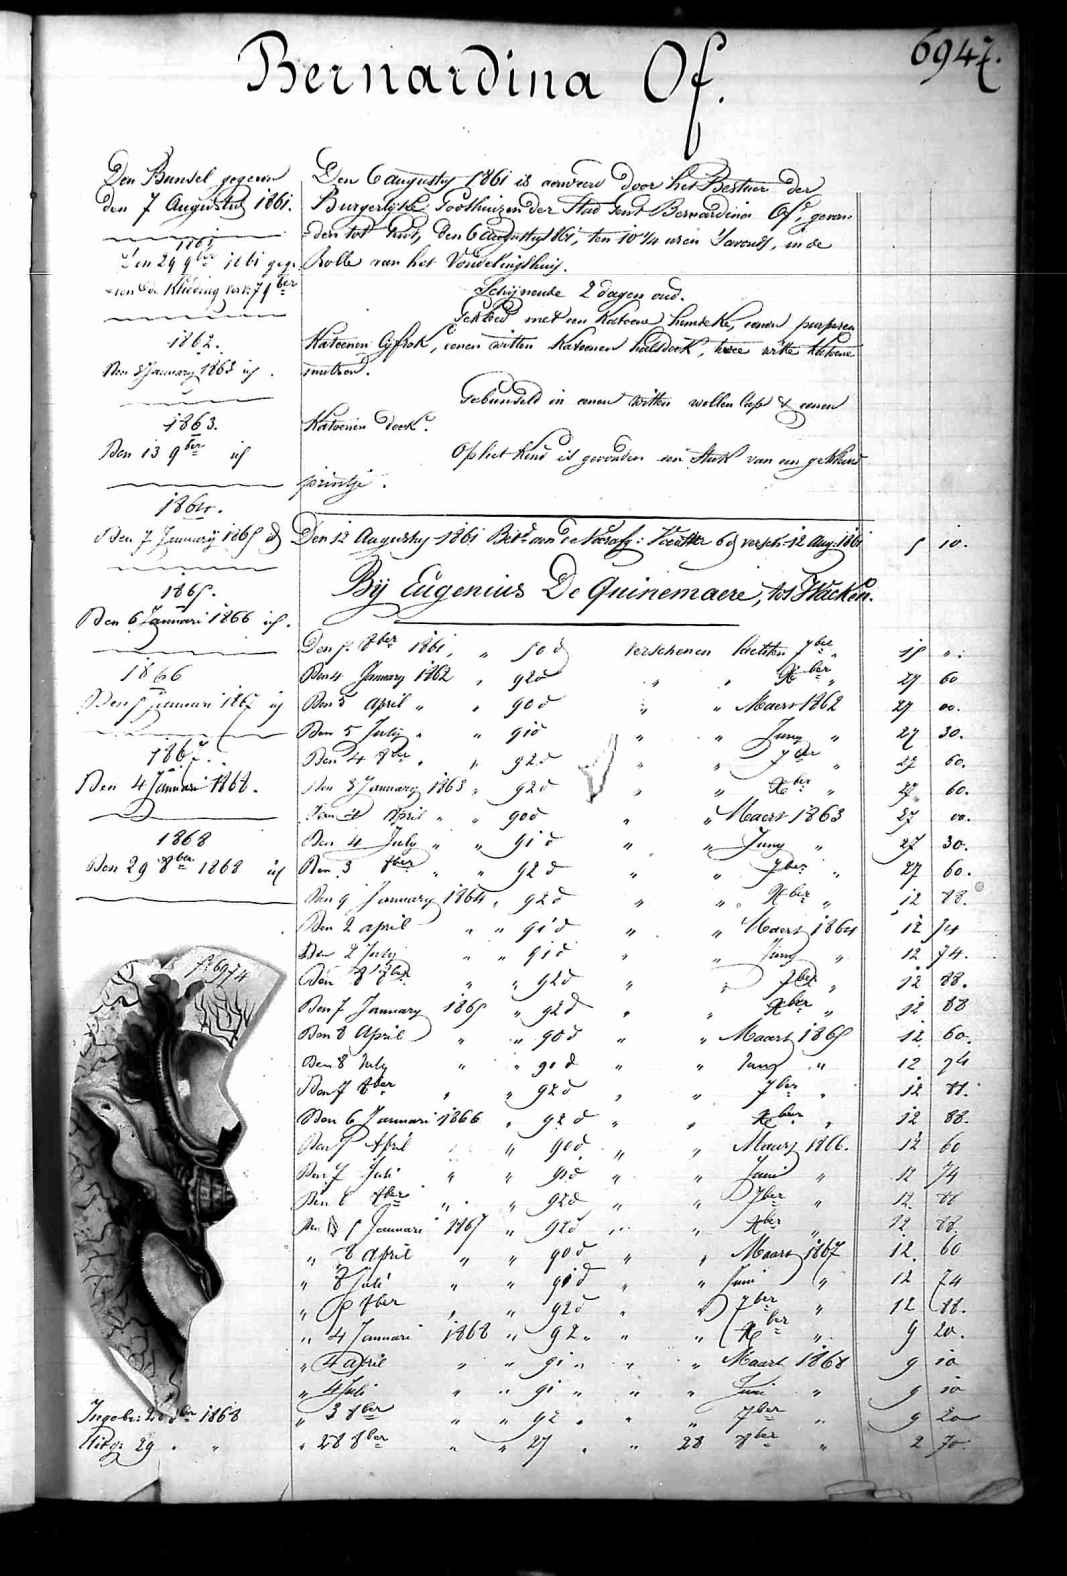 Bernardina Of.
6947.
Den Bunsel gegeven
den 7 Augustus 1861.
1861
Den 29 9ber 1861 gege
ven de Kleeding van 7 9ber
1862.
Den 8 January 1863 id.
1863.
Den 13 9ber id
1864.
Den 7 January 1865 id
1865.
Den 6 Januari 1866 id.
1866
Den 5 Januari 1867 id
1867.
Den 4 Januari 1868.
1868
Den 29 8ber 1868 id
f° 6974
8ber 1868
29 " "
Den 6 augusty 1861 is aenveerd door het Bestuer der
Burgerlijke Godshuizen der Stad Gent Bernardina Of, gevon
den tot Gent, den 6 augusty 1861, ten 10 1/4 uren 's avonds, in de
Rolle van het Vondelingshuis.
Schijnende 2 dagen oud.
Gekleed met een Katoene hemdeke, eenen purperen
Katoenen lijfrok, eenen witten Katoenen halsdoek, twee witte Katoene
mutsen.
Gebunseld in eenen witten wollen lap & eenen
Katoenen doek.
Op het Kind is gevonden een stuk van een gekleurd
printje.
Den 12 Augusty 1861 Bet. aen de 6 d versch. 12 Aug. 1861 5 10.
By Eugenius De Quinemaere, tot Hacken.
Den 5 8ber 1861, " 50 d verschenen 7ber " 15 " .
Den 4 January 1862 " 92 d " " Xber " 27 60
Den 5 April " " 90 d " " Maert 1862 27 00.
Den 5 July " " 91 d " " Juny " 27 30.
Den 4 8ber " " 92 d " " 7ber " 27 60.
Den 8 January 1863 " 92 d " " Xber " 27 60.
Den 4 April " " 90 d " " Maert 1863 27 00.
Den 4 July " " 91 d " " Juny " 27 30.
Den 3 8ber " " 92 d " " 7ber " 27 60.
Den 9 January 1864 " 92 d " " Xber " 12 88.
Den 2 april " " 91 d " " Maert 1864 12 74
Den 2 July " " 91 d " " Juny " 12 74.
Den 8 8ber " " 92 d " " 7ber " 12 88.
Den 7 January 1865 " 92 d " " Xber " 12 88
Den 8 April " " 90 d " " Maart 1865 12 60.
Den 8 July " " 91 d " " Juny " 12 74
Den 7 8ber " " 92 d " " 7ber " 12 88.
Den 6 Januari 1866 " 92 d " " Xber " 12 88.
Den 7 April " " 90 d " " Maart 1866. 12 60
Den 7 Juli " " 91 d " " Juni " 12 74
Den 6 8ber " " 92 d " " 7ber " 12 88
Den 5 Januari 1867 " 92 d " " Xber " 12 88.
" 8 april " " 90 d " " Maart 1867 12. 60
" 8 Juli " " 91 d " " Juni " 12 74
" 8ber " " 92 d " " 7ber " 12 88.
" 4 Januari 1868 " 92 " " " Xber " 9 20.
" 4 april " " 91 " " " Maart 1868 9 10
" 4 Juli " " 91 " " " Juni " 9 10
" 3 8ber " " 92 " " " 7ber " 9 20
" 28 8ber " " 27 " " 28 8ber " 2 70